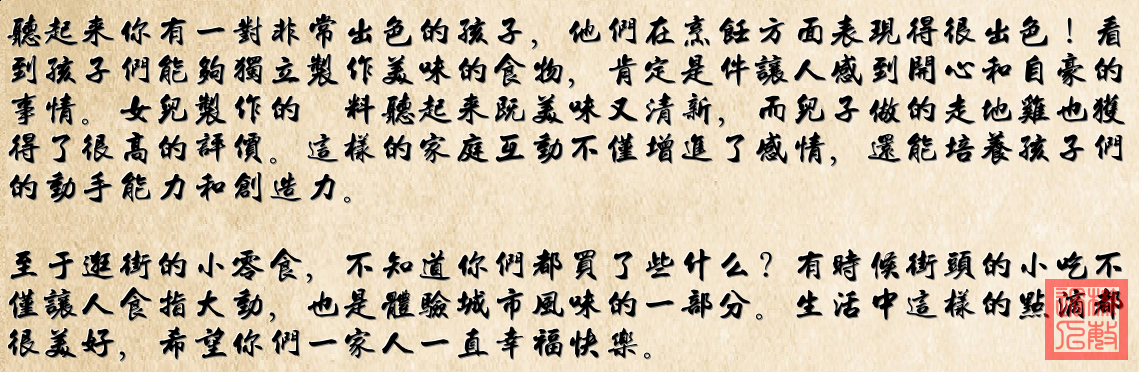 聽起来你有一對非常出色的孩子，他們在烹飪方面表現得很出色！看
到孩子們能夠獨立製作美味的食物，肯定是件讓人感到開心和自豪的
事情。女兒製作的　料聽起来既美味又清新，而兒子做的走地雞也獲
得了很高的評價。這樣的家庭互動不僅增進了感情，還能培養孩子們
的動手能力和創造力。
至于逛街的小零食，不知道你們都買了些什么？有時候街頭的小吃不
僅讓人食指大動，也是體驗城市風味的一部分。生活中這樣的點滴都
很美好，希望你們一家人一直幸福快樂。